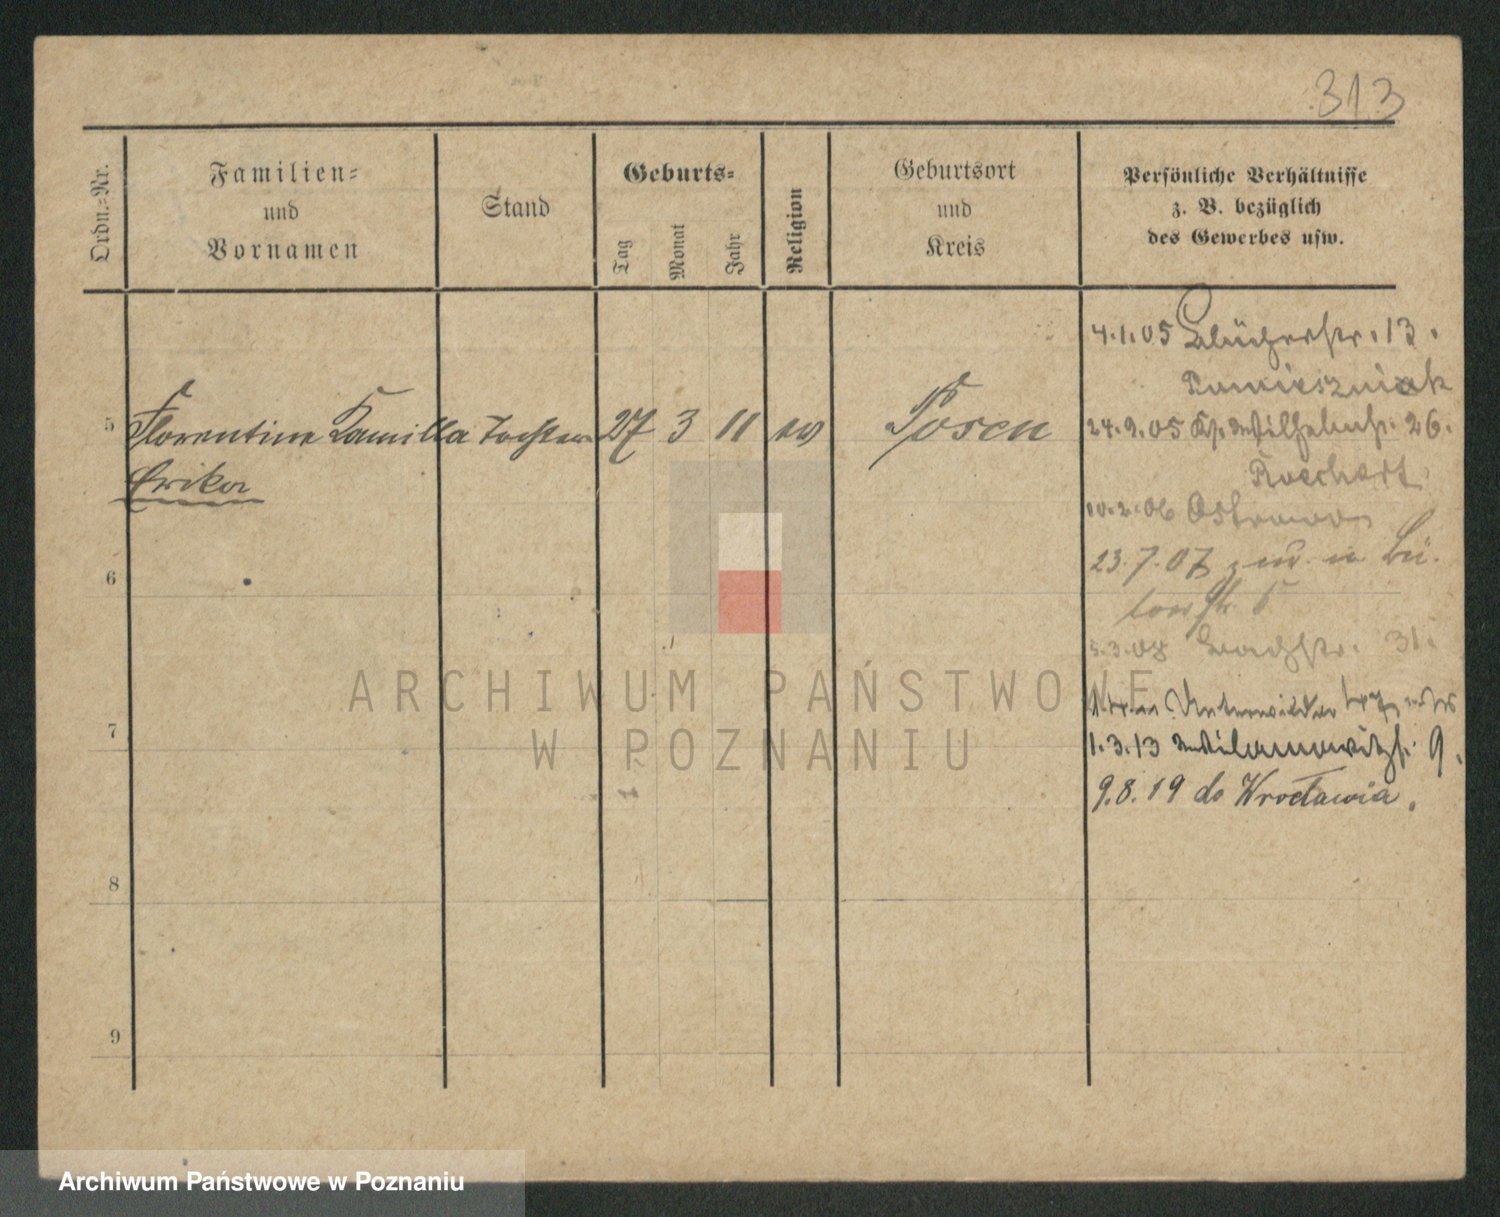 313
Ordn.-Nr.
Familien-
und
Vornamen
Stand
Geburts-
Tag
Monat
Jahr
Religion
Geburtsort
und
Kreis
Persönliche Verhältnisse
z. B. bezüglich
des Gewerbes usw.
4.1.05 Blücherstr. 13.
5 Florentine Kamilla Tochter 27 3 11 ev Posen
Erika
24.9.05 Kl. Wilhelmstr. 26.
10.2.06 Ostrowo
23.7.07 zur. in Bü-
lowstr 5
5.3.08 Bachstr. 31.
6
7
1.3.13 Wilamowitzstr. 9.
9.8.19 do Wrocławia.
8
9
ARCHIWUM PAŃSTWOWE
W POZNANIU
Archiwum Państwowe w Poznaniu